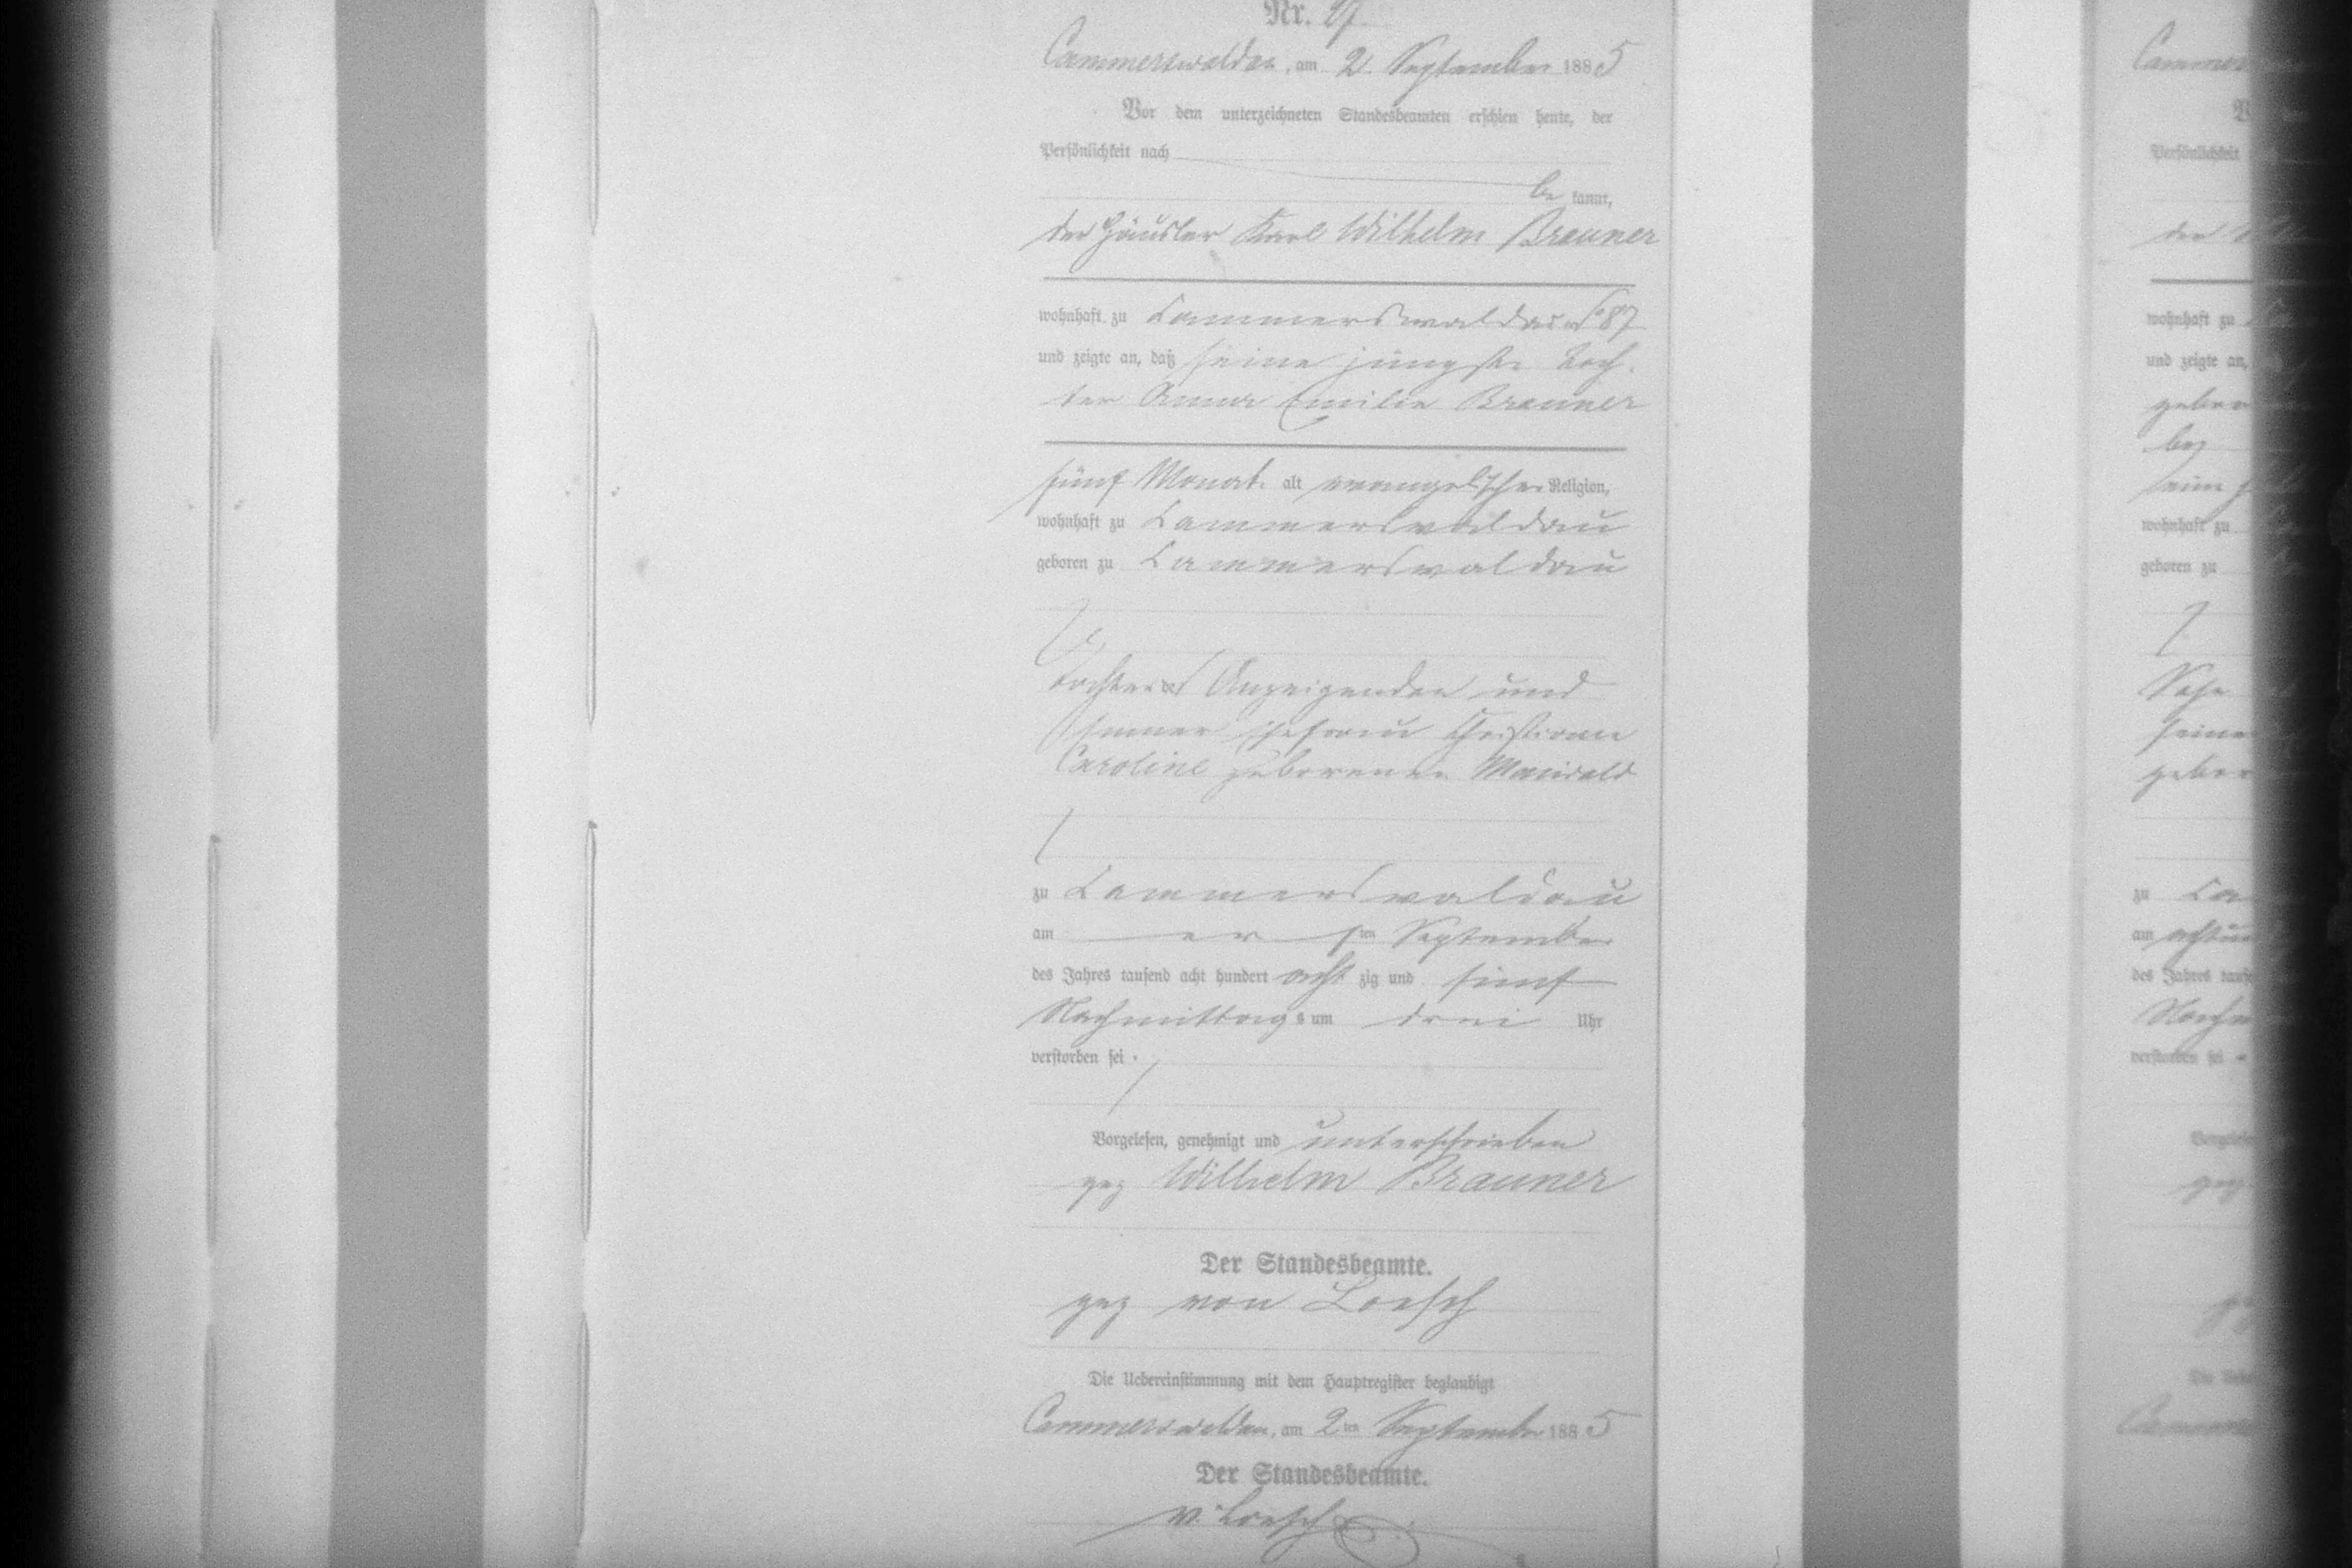 Nr. 27.
Cammerswaldau, am 2. September 1885
Vor dem unterzeichneten Standesbeamten erschien heute, der
Persönlichkeit nach
be kannt,
der Häusler Karl Wilhelm Brauner
wohnhaft zu Cammerswaldau No 87
und zeigte an, daß seine jüngste Toch-
ter Anna Emilie Brauner
fünf Monate alt evangelischer Religion,
wohnhaft zu Cammerswaldau
geboren zu Cammerswaldau
Tochter des Anzeigenden und
seiner Ehefrau Christiane
Caroline geborenen Maiwald
zu Cammerswaldau
am ersten September
des Jahres tausend acht hundert acht zig und fünf
Nachmittags um drei Uhr
verstorben sei.
Vorgelesen, genehmigt und unterschrieben
gez Wilhelm Brauner
Der Standesbeamte.
gez von Loesch
Die Uebereinstimmung mit dem Hauptregister beglaubigt
Cammerswaldau, am 2ten September 1885
Der Standesbeamte.
v. Loesch
Persönlichkeit
wohnhaft zu
und zeigte an,
wohnhaft zu
geboren zu
zu
am
des Jahres
verstorben sei
gez